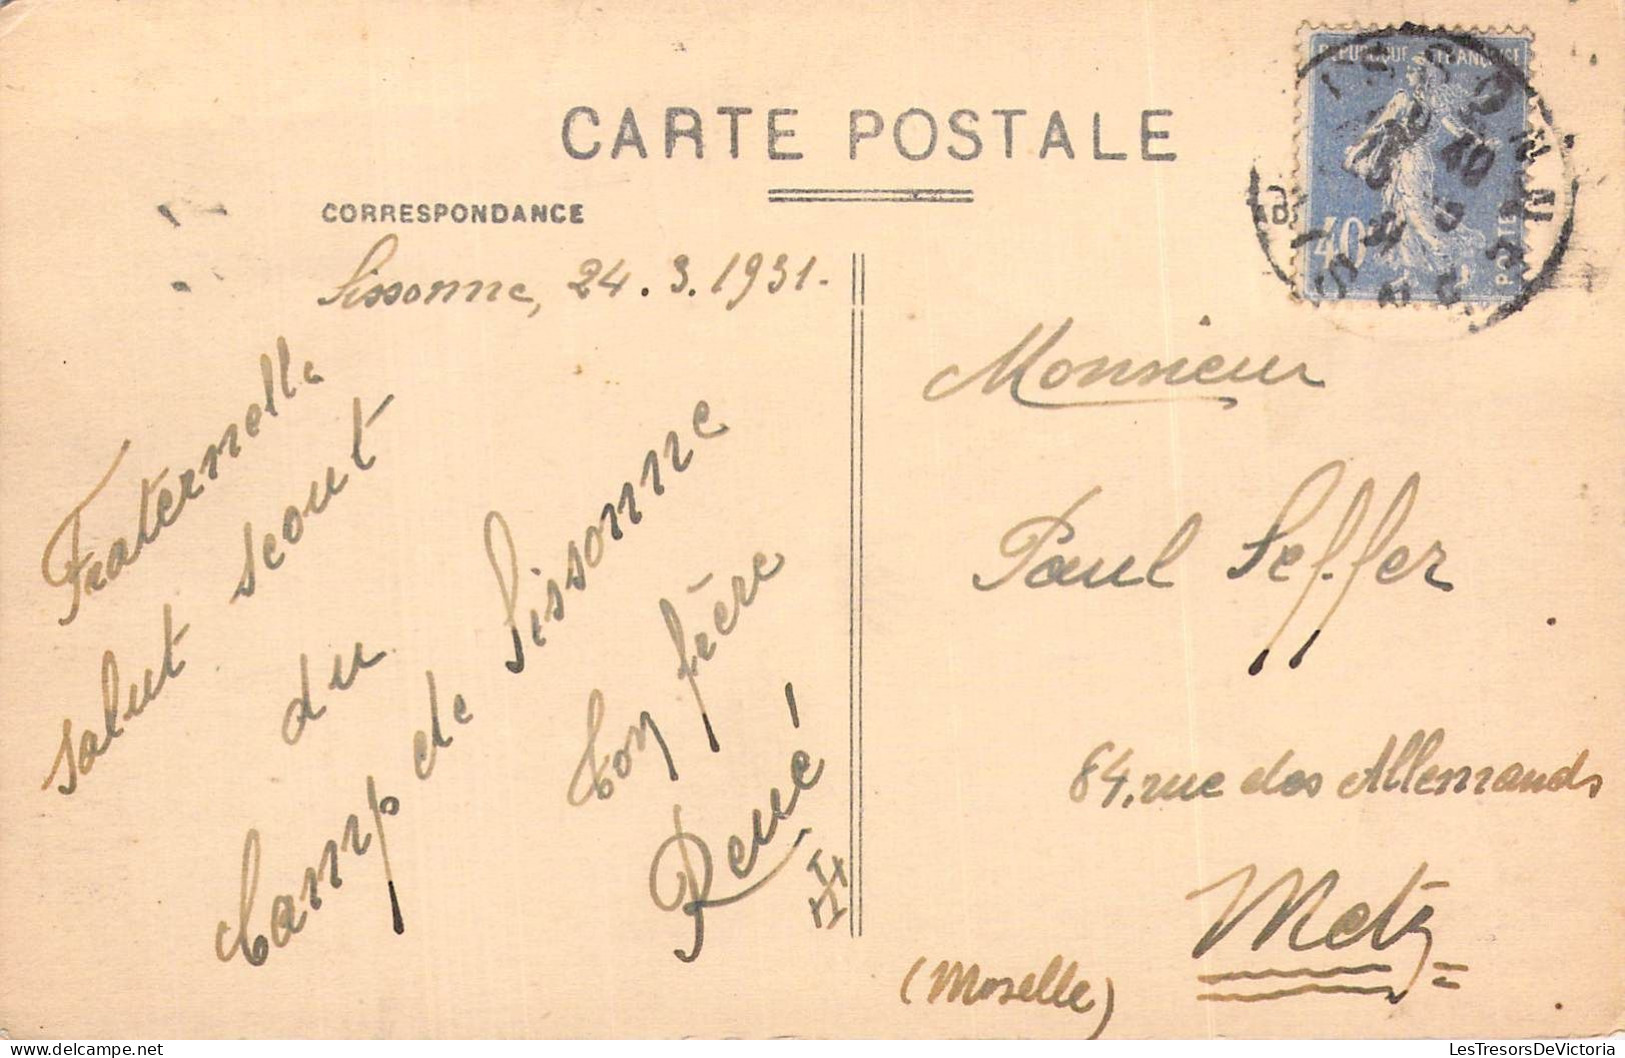 CARTE POSTALE
CORRESPONDANCE
REPUBLIQUE FRANÇAISE
40c
POSTES
Sissonne, 24.3.1931.
Fraternelle
salut scout
du
Camp de Sissonne
Ton frère
René
Monsieur
Paul Seffer
84, rue des Allemands
Metz
(Moselle)
LesTresorsDeVictoria